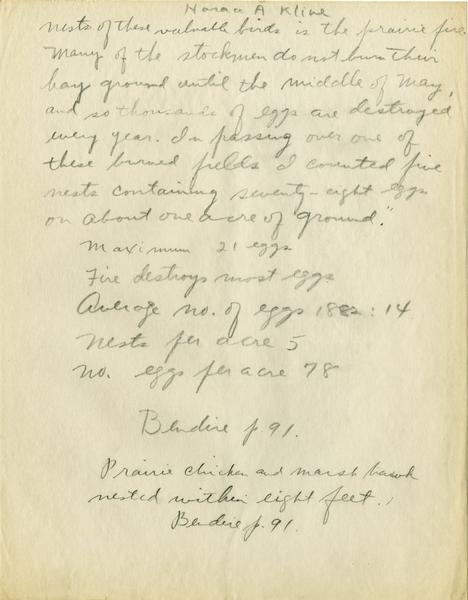 Horace A Kline
nests of these valuable birds is the prairie fire.
Many of the stockmen do not burn their
hay ground until the middle of May,
and so thousands of eggs are destroyed
every year. In passing over one of
these burned fields I counted five
nests containing seventy-eight eggs
on about one acre of ground."
Maximum 21 eggs
Fire destroys most eggs
Average no. of eggs 1882: 14
Nests per acre 5
No. eggs per acre 78
Bendire p. 91.
Prairie chicken and marsh hawk
nested within eight feet.
Bendire p. 91.